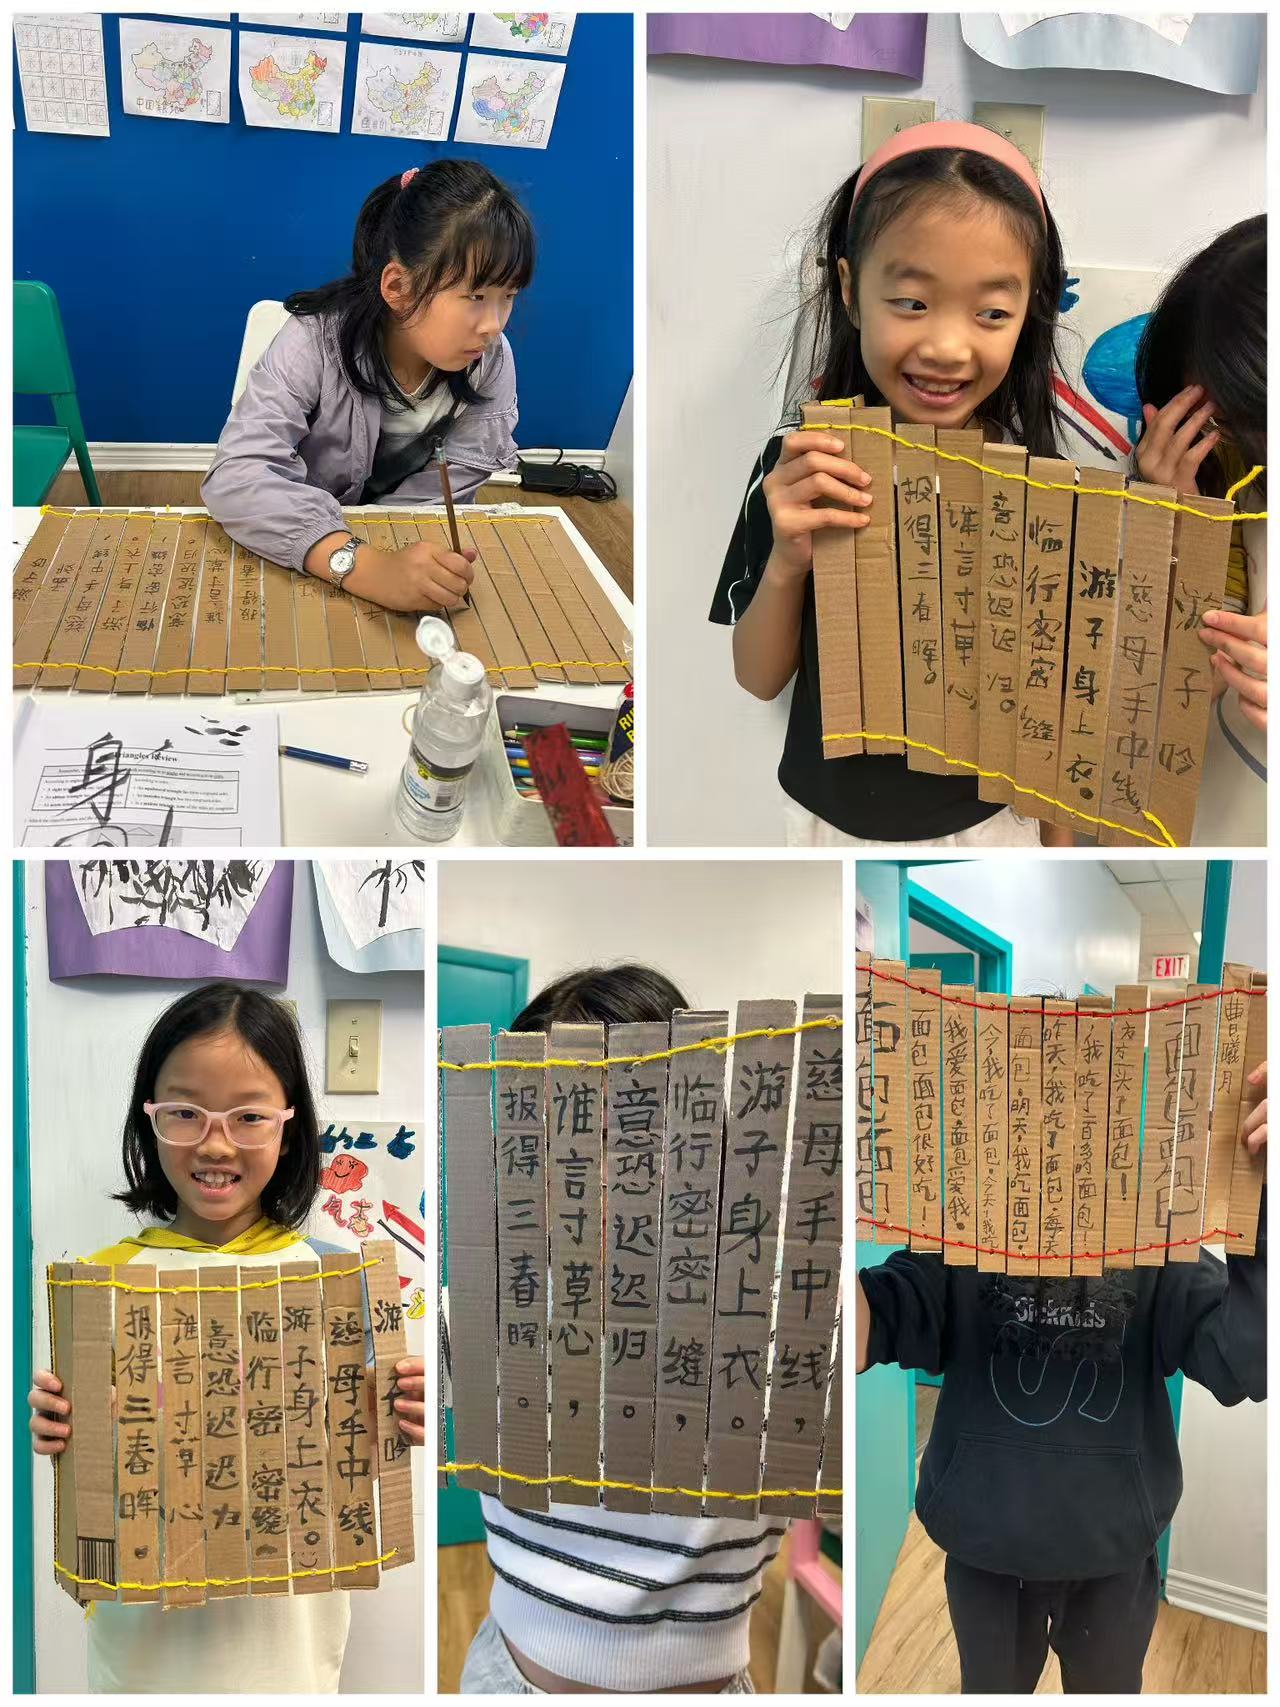 游子吟
孟郊
慈母手中线
游子身上衣。
临行密密缝,
意恐迟迟归。
谁言寸草心
报得三春晖
江
身
Triangles Review
游子吟
慈母手中线,
游子身上衣。
临行密密缝,
意恐迟迟归。
谁言寸草心
报得三春晖。
游子吟
慈母手中线。
游子身上衣。
临行密密缝。
意恐迟迟归
谁言寸草心
报得三春晖。
慈母手中线,
游子身上衣。
临行密密缝,
意恐迟迟归。
谁言寸草心,
报得三春晖。
EXIT
曹曦月
面包面包
买了面包！
，我吃了百多的面包！
昨天，我吃了面包，每天
面包，明天，我吃面包。
今，我吃了面包。今天，我吃
我爱面包，面包爱我。
面包面包很好吃！
面包面包
SickKids